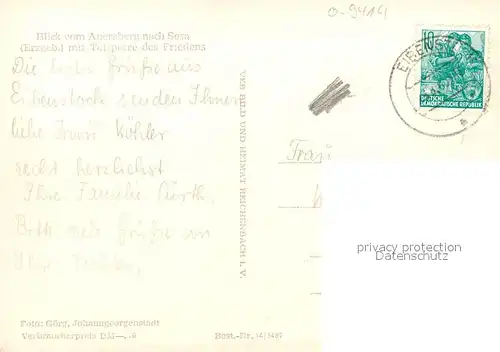 0-9414
Blick vom Auersberg nach Sosa
(Erzgeb.) mit Talsperre des Friedens
Die besten Grüße aus
Eibenstock senden Ihnen
liebe Frau Köhler
recht herzlichst
Ihre Familie
Bitte auch Grüße an
Ihre
VEB BILD UND HEIMAT REICHENBACH I. V.
EIBENST
10
DEUTSCHE
DEMOKRATISCHE REPUBLIK
Frau
privacy protection
www.ansichtskarten-center.de
Foto: Görg, Johanngeorgenstadt
Verbraucherpreis DM
Best.-Nr.